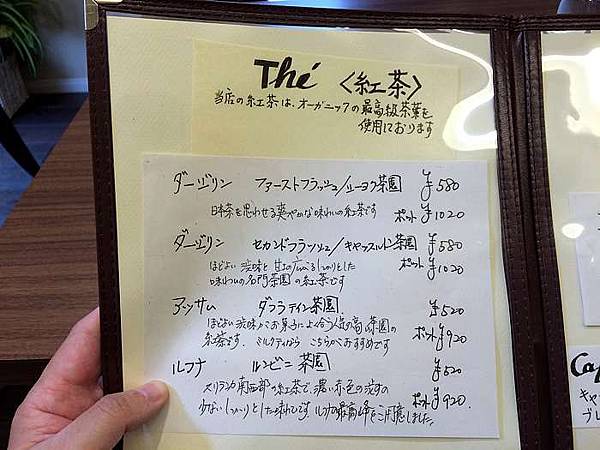 Thé 〈紅茶〉
当店の紅茶は、オーガニックの最高級茶葉を
使用しております
ダージリン ファーストフラッシュ/リーヨウ茶園 ¥580
日本茶を思わせる爽やかな味わいの紅茶です ポット ¥1020
ダージリン セカンドフラッシュ/キャッスルトン茶園 ¥580
ほどよい渋味と甘みの広がるしっかりとした ポット ¥1020
味わいの名門茶園の紅茶です
アッサム ダフラティン茶園 ¥520
ほどよい渋味がお菓子によく合う人気の高い茶園の ポット ¥920
紅茶です。ミルクティなら こちらがおすすめです
ルフナ ルンビニ茶園 ¥520
スリランカ南西部の紅茶で、濃い赤色の渋みの
少ないしっかりとした味わいです。ルフナの最高峰をご用意しました。 ポット ¥920
Ca
キャ
ブレ